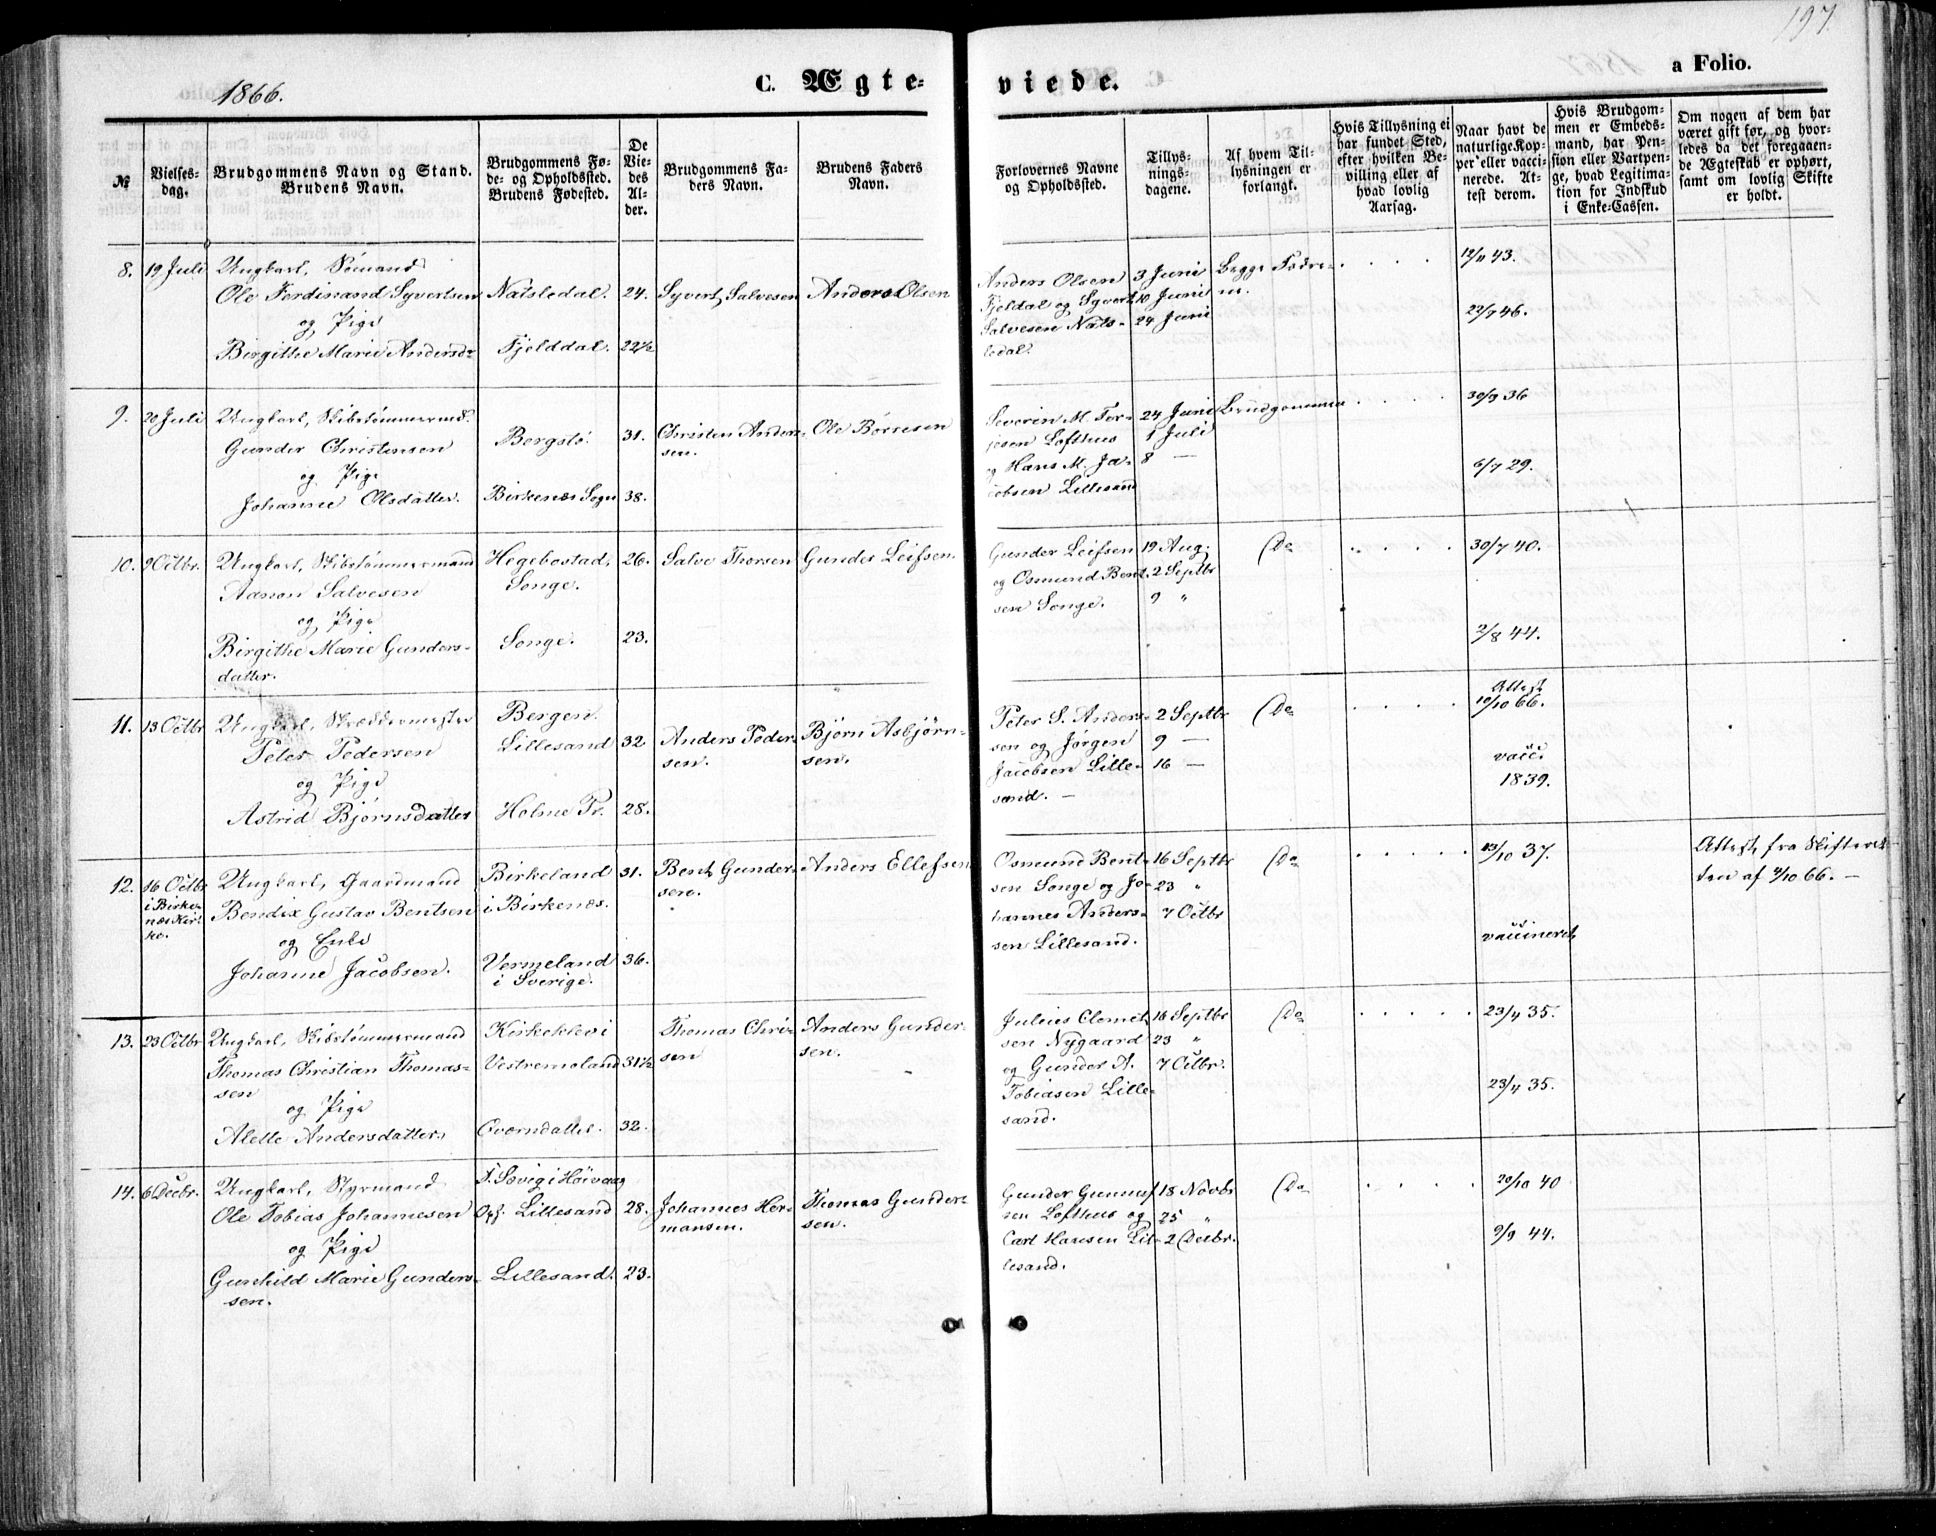 197.
1866.
C. Ægte-
viede.
a Folio.
No
Vielses-
dag.
Brudgommens Navn og Stand.
Brudens Navn.
Brudgommens Fø-
de- og Opholdssted.
Brudens Fødested.
De
Vie-
des
Al-
der.
Brudgommens Fa-
ders Navn.
Brudens Faders
Navn.
Forlovernes Navne
og Opholdssted.
Tillys-
nings-
dagene.
Af hvem Til-
lysningen er
forlangt.
Hvis Tillysning ei
har fundet Sted,
efter hvilken Be-
villing eller af
hvad lovlig
Aarsag.
Naar havt de
naturlige Kop-
per eller vacci-
nerede. At-
test derom.
Hvis Brudgom-
men er Embeds-
mand, har Pen-
sion eller Vartpen-
ge, hvad Legitima-
tion for Indskud
i Enke-Cassen.
Om nogen af dem har
været gift før, og hvor-
ledes da det foregaaen-
de Ægteskab er ophørt,
samt om lovlig Skifte
er holdt.
8. 19 Juli
Ungkarl, Sømand
Ole Ferdinand Syvertsen
og Pige
Birgithe Marie Andersdr
Natsledal.
Fjelddal.
24.
22½
Syvert Salvesen
Anders Olsen
Anders Olsen
Fjeldal og Syvert
Salvesen Nats-
ledal.
3 Juni
10 Juni
24 Juni
Begge Fædre-
ne.
12/11 43.
22/7 46.
9. 20 Juli
Ungkarl, Skibstømmermd.
Gunder Christensen
og Pige
Johanne Olsdatter.
Bergslø.
Birkenæs Sogn
31.
38.
Christen Ander-
sen.
Ole Børresen
Severin M. Ter-
jesen Lofthus
og Hans M. Ja-
cobsen Lillesand
24 Juni
1 Juli
8 —
Brudgommen
30/9 36
6/7 29.
10. 9 Octbr.
Ungkarl, Skibstømmermand
Aanon Salvesen
og Pige
Birgithe Marie Gunders-
datter.
Hegebostad,
Songe.
Songe.
26.
23.
Salve Thorsen
Gunder Leifsen.
Gunder Leifsen
og Osmund Bent-
sen Songe.
19 Aug.
2 Septbr
9 "
Do
30/7 40.
2/8 44.
11. 13 Octbr
Ungkarl, Skræddermester
Peter Pedersen
og Pige
Astrid Bjørnsdatter
Bergen.
Lillesand
Holme Pr.
32
28.
Anders Peder-
sen.
Bjørn Asbjørn-
sen.
Peter S. Anders-
sen og Jørgen
Jacobsen Lille-
sand. —
2 Septbr
9 —
16 —
Do
Attest
10/10 66.
vacc.
1839.
12. 16 Octbr
i Birke-
næs Kir-
ke.
Ungkarl, Gaardmand
Bendix Gustav Bentsen
og Enke
Johanne Jacobsen.
Birkeland
i Birkenæs.
Vermeland
i Sverige.
31.
36.
Bent Gunder-
sen.
Anders Ellefsen
Osmund Bent-
sen Songe og Jo-
hannes Anders-
sen Lillesand.
16 Septbr
23 "
7 Octbr
Do
13/10 37.
vaccineret
Attest fra Skifteret-
ten af 9/10 66. —
13. 23 Octbr
Ungkarl, Skibstømmermand
Thomas Christian Thomas-
sen
og Pige
Alette Andersdatter,
Kirkeklev i
Vestremoland
Qværndallen.
31½
32.
Thomas Chri-
sen
Anders Gunder-
sen.
Julius Clemet-
sen Nygaard
og Gunder A.
Tobiasen Lille-
sand.
16 Septbr
23 "
7 Octbr.
Do
23/4 35.
23/4 35.
14. 6 Decbr.
Ungkarl, Styrmand
Ole Tobias Johannesen
og Pige
Gunhild Marie Gunders-
sen.
F. Sævig i Høivaag
Oph. Lillesand
Lillesand.
28.
23.
Johannes Her-
mansen.
Thomas Gunder-
sen.
Gunder Gunnuf-
sen Lofthus og
Carl Hansen Lil-
lesand.
18 Novbr
25 "
2 Decbr.
Do
20/10 40
9/9 44.